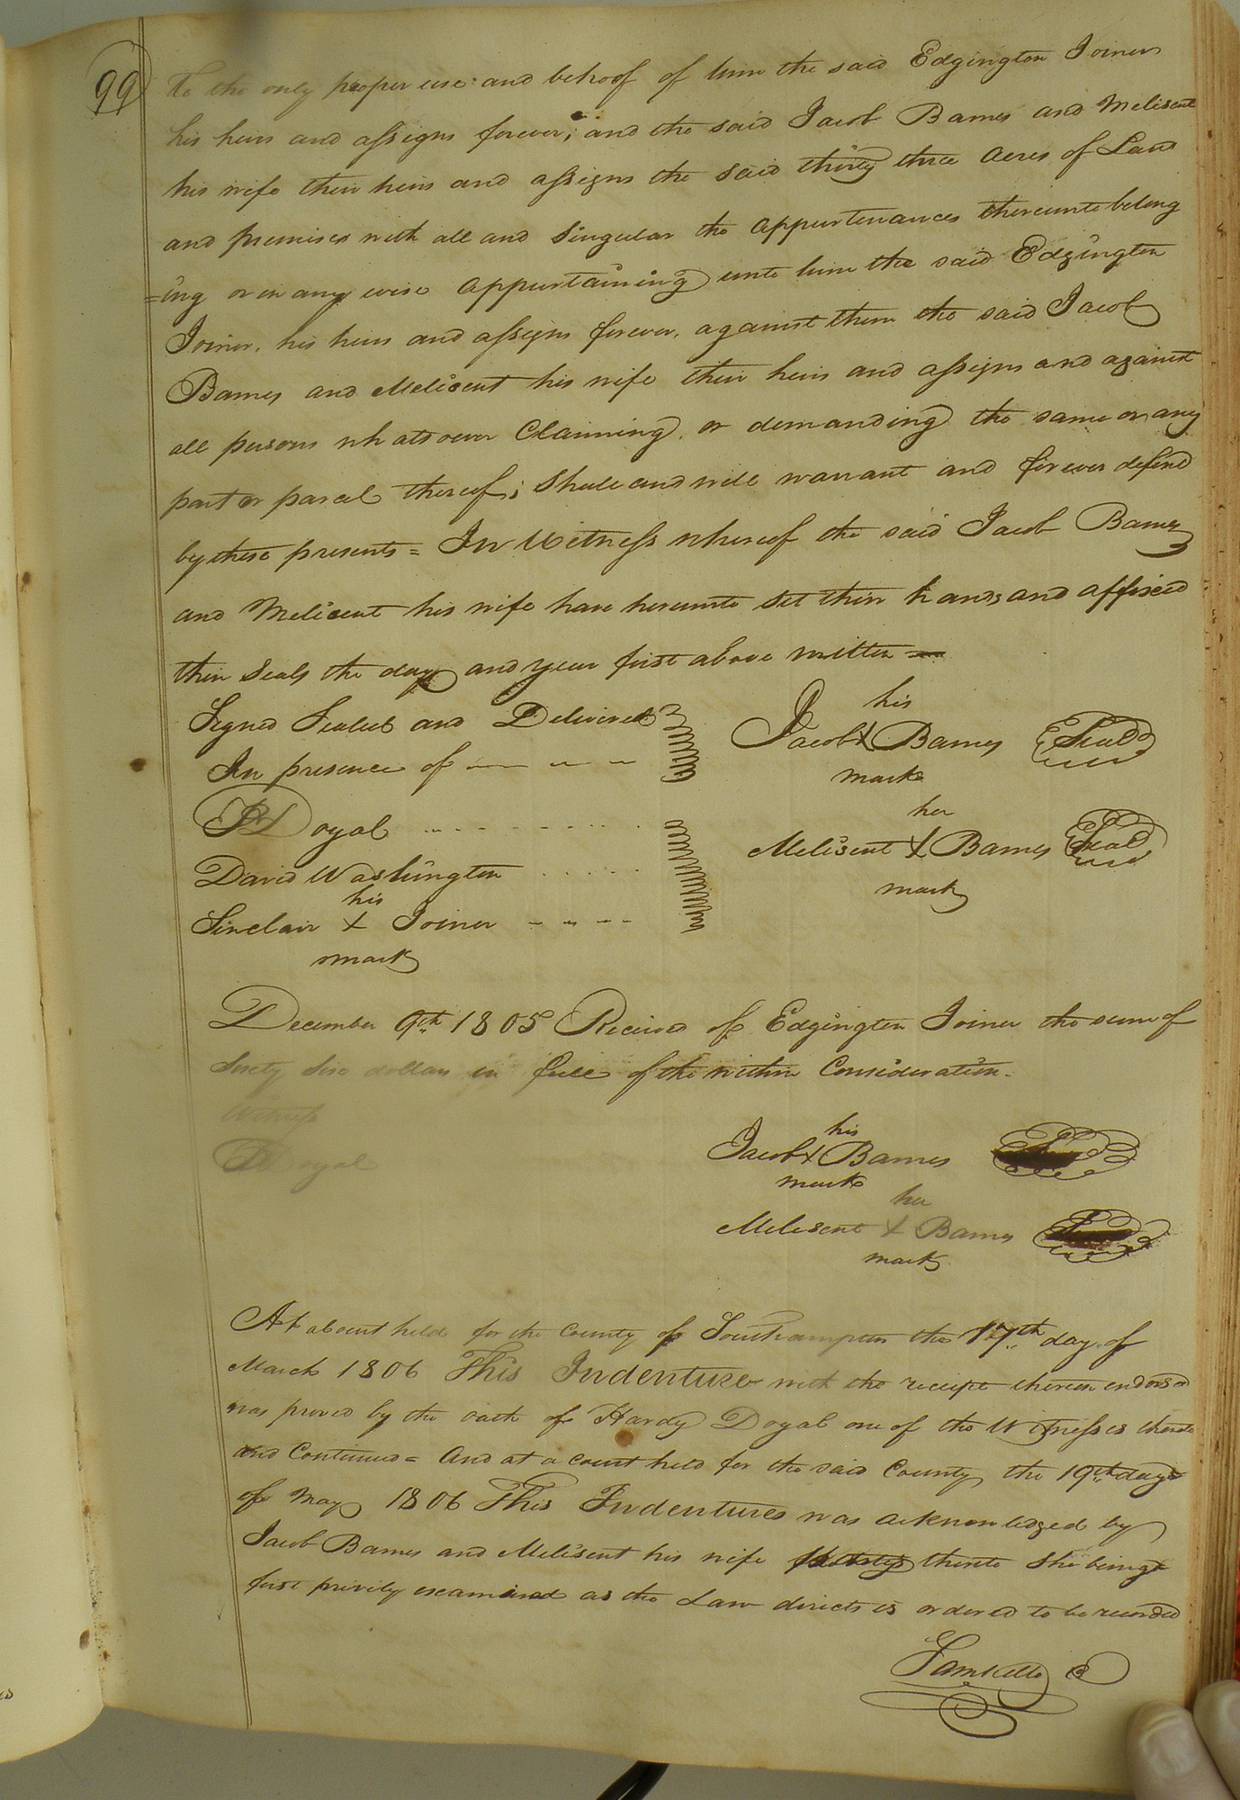 99
To the only proper use and behoof of him the said Edgington Joiner
his heirs and assigns forever; and the said Jacob Barnes and Melisent
his wife their heirs and assigns the said thirty three acres of Land
and premises with all and singular the appurtenances thereunto belong
=ing or in any wise appurtaining unto him the said Edgington
Joiner, his heirs and assigns forever, against them the said Jacob
Barnes and Melisent his wife their heirs and assigns and against
all persons whatsoever Claiming, or demanding the same or any
part or parcel thereof; Shall and will warrant and forever defend
by these presents = In Witness whereof the said Jacob Barnes
and Melisent his wife have hereunto set their hands and affixed
their Seals the day and year first above written
Signed Sealed and Delivered
In presence of
H Doyal
David Washington
his
Sinclair + Joiner
mark
his
Jacob + Barnes Seal
mark
her
Melisent + Barnes Seal
mark
December 9th 1805 Received of Edgington Joiner the sum of
Sixty Six dollars in full of the within Consideration.
Witness
H Doyal
his
Jacob + Barnes
mark
her
Melisent + Barnes
mark
At a Court held for the County of Southampton the 17th day of
March 1806 This Indenture with the receipt thereon endorsed
was proved by the oath of Hardy Doyal one of the Witnesses thereto
and Continued = And at a Court held for the said County the 19th day
of May 1806 This Indentures was acknowledged by
Jacob Barnes and Melisent his wife thereto She being
first privily examined as the Law directs is ordered to be recorded
Saml Kello C